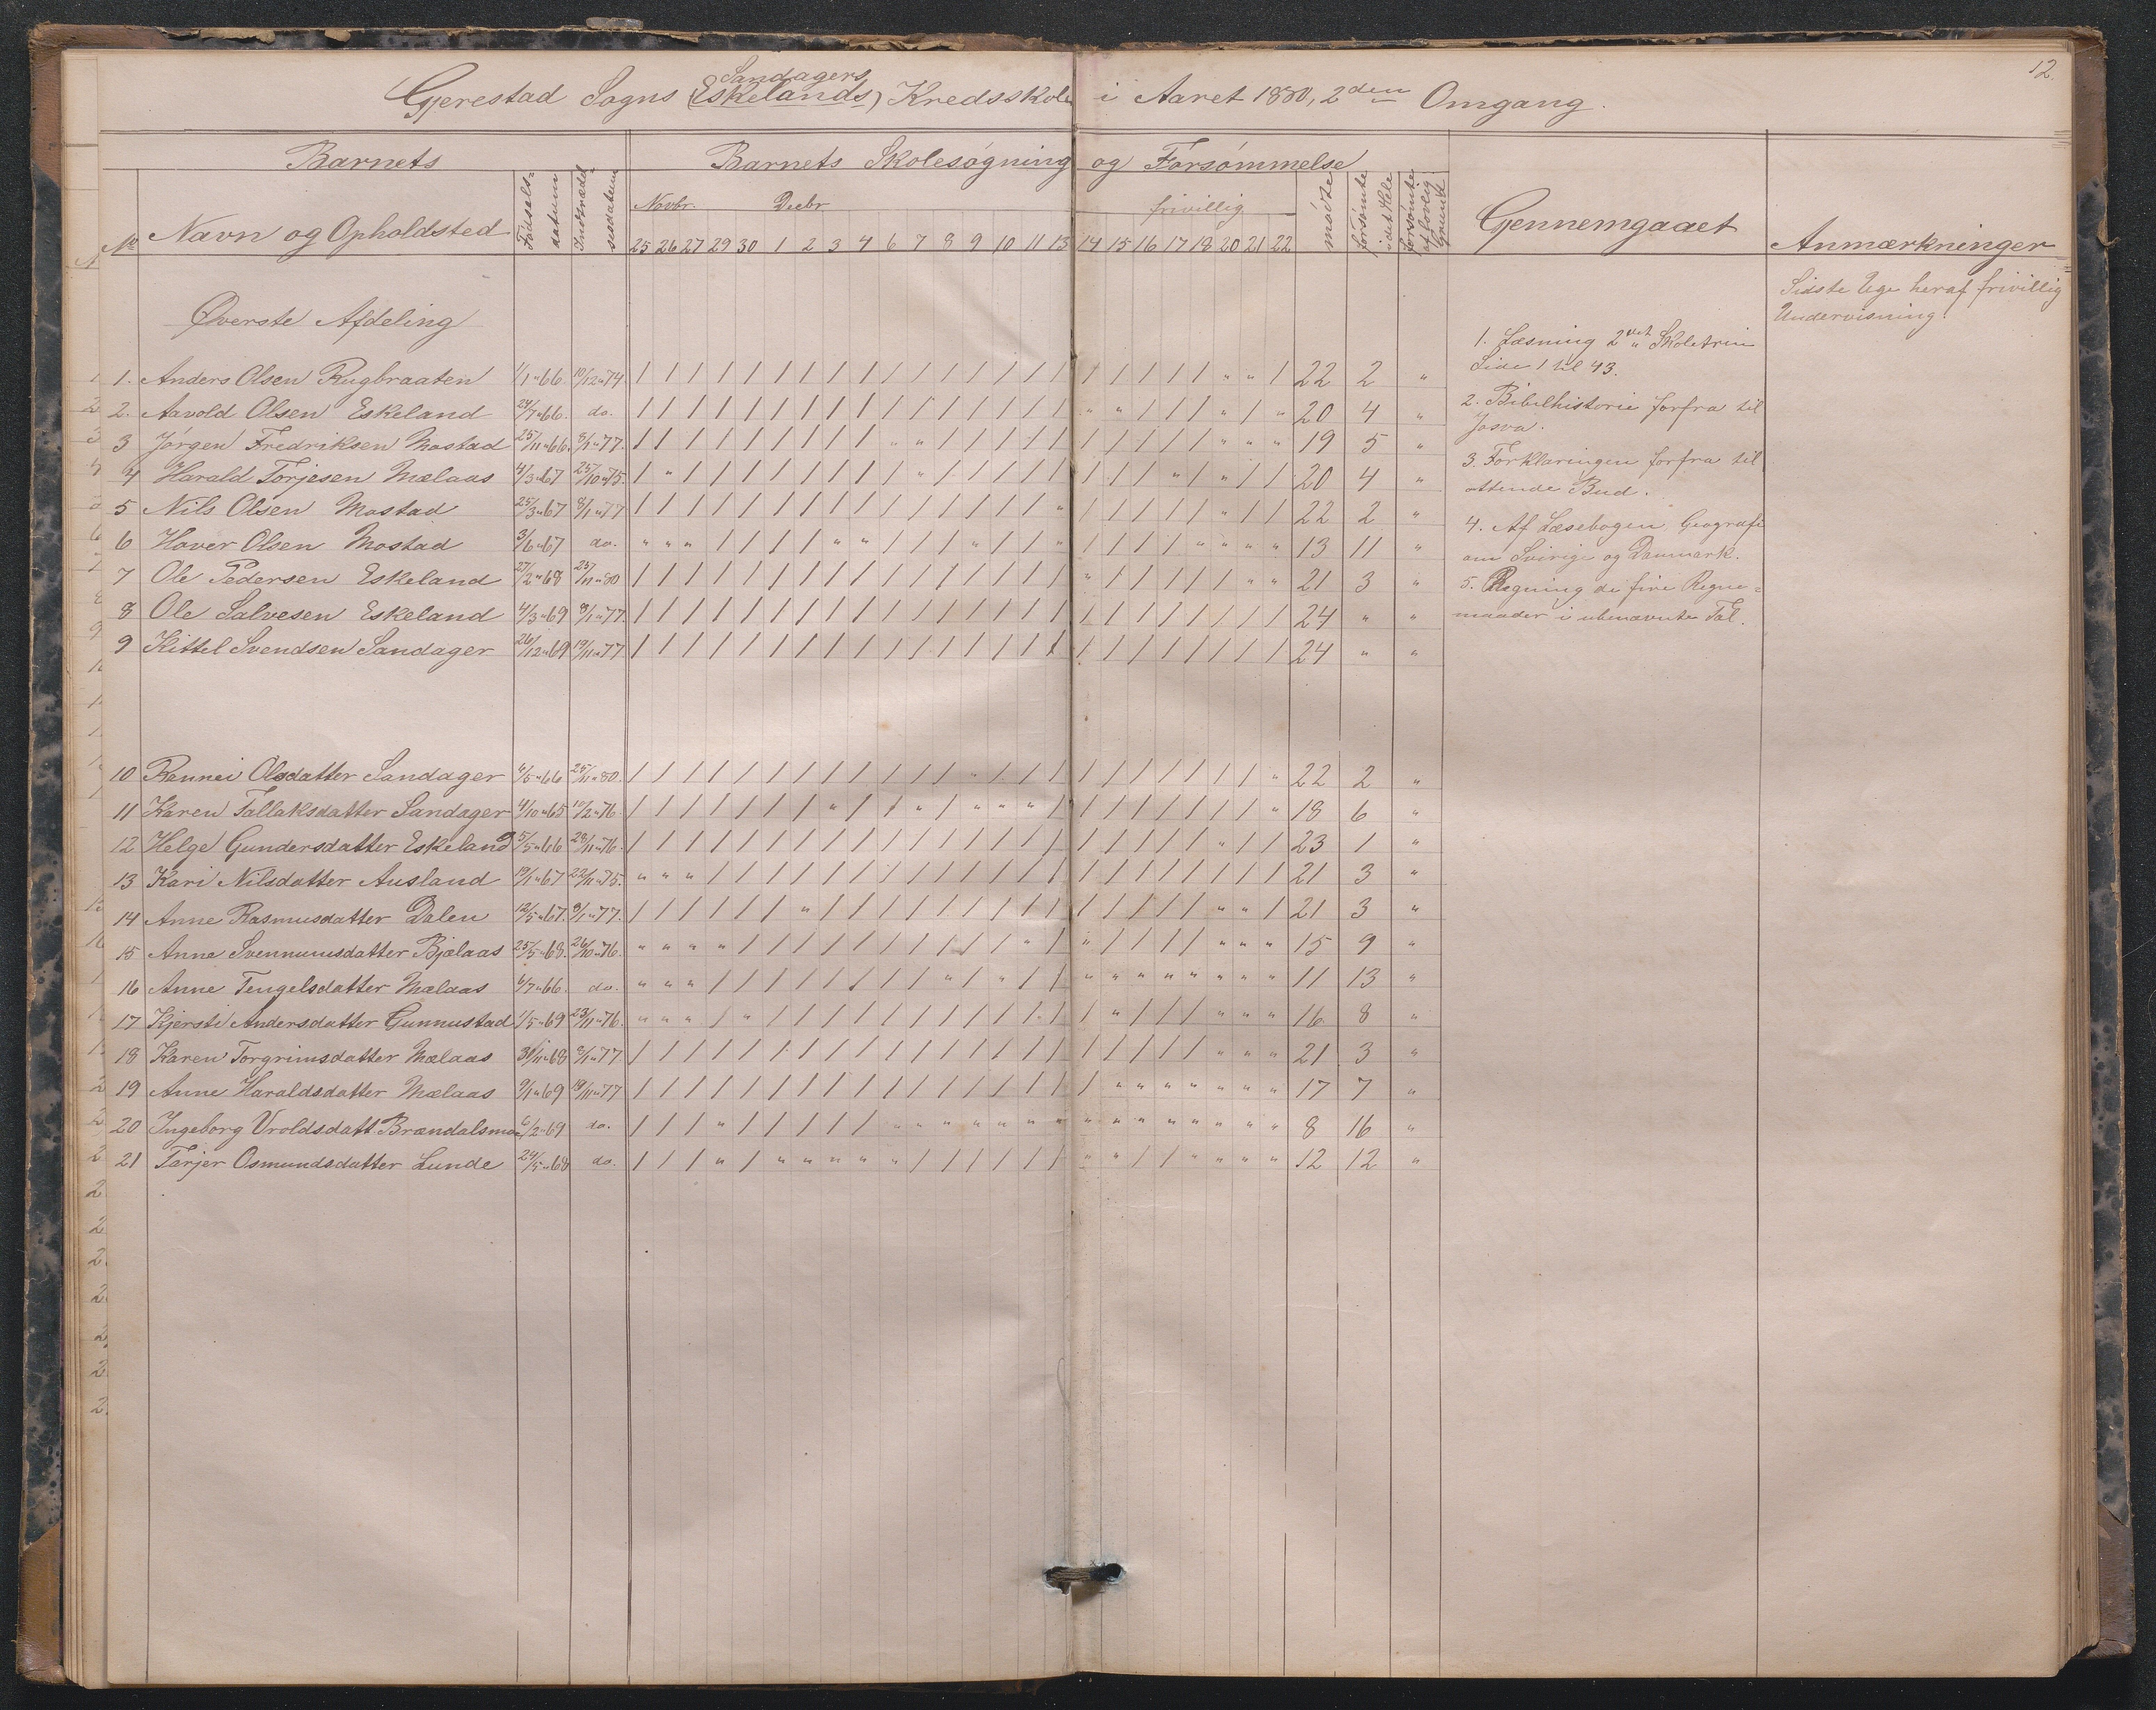 12.
Sandagers
Gjerestad Sogns (Eskelands) Kredsskole i Aaret 1880, 2den Omgang.
Barnets Barnets Skolesøgning og Forsømmelse
No Navn og Opholdsted Fødsels-datum Indtrædelsesdatum Novbr. Decbr frivillig mødte forsømte i det Hele forsømte af lovlig Grund Gjennemgaaet Anmærkninger
25 26 27 29 30 1 2 3 4 6 7 8 9 10 11 13 14 15 16 17 18 20 21 22
Sidste Uge heraf frivillig
Undervisning.
Øverste Afdeling
1. Anders Olsen Rugbraaten 1/1 "66. 10/12 "74. / / / / / / / / / / / / / / / / / / / / / " " / 22 2 "
2. Aavold Olsen Eskeland 24/7 "66. do. / / / / / / / / / / / / / / / / " " / / / " / " 20 4 "
3 Jørgen Fredriksen Mostad 25/11 "66. 8/1 "77. / / / / / / / / / " " / / / / / / / / / / " " " 19 5 "
4 Harald Torjesen Mælaas 4/3 "67 25/10 "75. / " / / / / / / / / " / / / / / / / / " / " / / 20 4 "
5 Nils Olsen Mostad 25/3 "67 8/1 "77 / / / / / / / / / / / / / / / " / / / / / " / / 22 2 "
6 Hover Olsen Mostad 3/6 "67 do. " " " / / / / " " / / / " / / " / / / / " " " " 13 11 "
7 Ole Pedersen Eskeland 27/2 "68 25/11 "80 / / / / / / / / / / / / / / / / " / / / / / " " 21 3 "
8 Ole Salvesen Eskeland 4/3 "69 8/1 "77. / / / / / / / / / / / / / / / / / / / / / / / / 24 " "
9 Kittel Svendsen Sandager 26/12 "69 19/11 "77 / / / / / / / / / / / / / / / / / / / / / / / / 24 " "
10 Rannei Olsdatter Sandager 6/5 "66 25/11 "80. / / / / / / / / / / / / " / / / / / / / / / / " 22 2 "
11 Karen Tallaksdatter Sandager 4/10 "65 10/2 "76. / / / / / / / " / / " / " " " / / / / / / / / " 18 6 "
12 Helge Gundersdatter Eskeland 5/5 "66 28/11 "76. / / / / / / / / / / / / / / / / / / / / / " / / 23 1 "
13 Kari Nilsdatter Ausland 19/1 "67 22/11 "75. " " " / / / / / / / / / / / / / / / / / / / / / 21 3 "
14 Anne Rasmusdatter Dalen 12/5 "67. 8/1 "77. / / / / / / " / / / / / / / / / / / / / / " " / 21 3 "
15 Anne Svennumsdatter Bjælaas 25/5 "68. 26/10 "76. " " " " / / / / / / / / / / " / " / / / / " " " 15 9 "
16 Anne Tengelsdatter Mælaas 6/7 "66. do. " " " / / / / / / / / " / " / / " " " " " " " " 11 13 "
17 Kjersti Andersdatter Gunnustad 1/5 "69 23/11 "76. " " " / " / / / / / / / / / " / / " / / / " " " 16 8 "
18 Karen Torgrimsdatter Mælaas 3/11 "68 8/1 "77 / / / / / / / / / / / / / / / / / / / / / " " " 21 3 "
19 Anne Haraldsdatter Mælaas 9/1 "69 19/11 "77 / / / / / / / / / / / / / / / / / " " " " " " " 17 7 "
20 Ingeborg Vroldsdatt. Brændalsmoe 6/2 "69 do. / / / " / / / / / " " " " " " " " " " " " " " " 8 16 "
21 Tærjer Osmundsdatter Lunde 24/5 "68 do. / / / " / " " " " " / / / / / / " " / / " " " " 12 12 "
1. Læsning 2det Skoletrin
Side 1 til 43.
2. Bibelhistorie forfra til
Josva.
3. Forklaringen forfra til
ottende Bud.
4. Af Læsebogen Geografi
om Sverige og Danmark.
5. Regning de fire Regne-
maader i ubenævnte Tal.